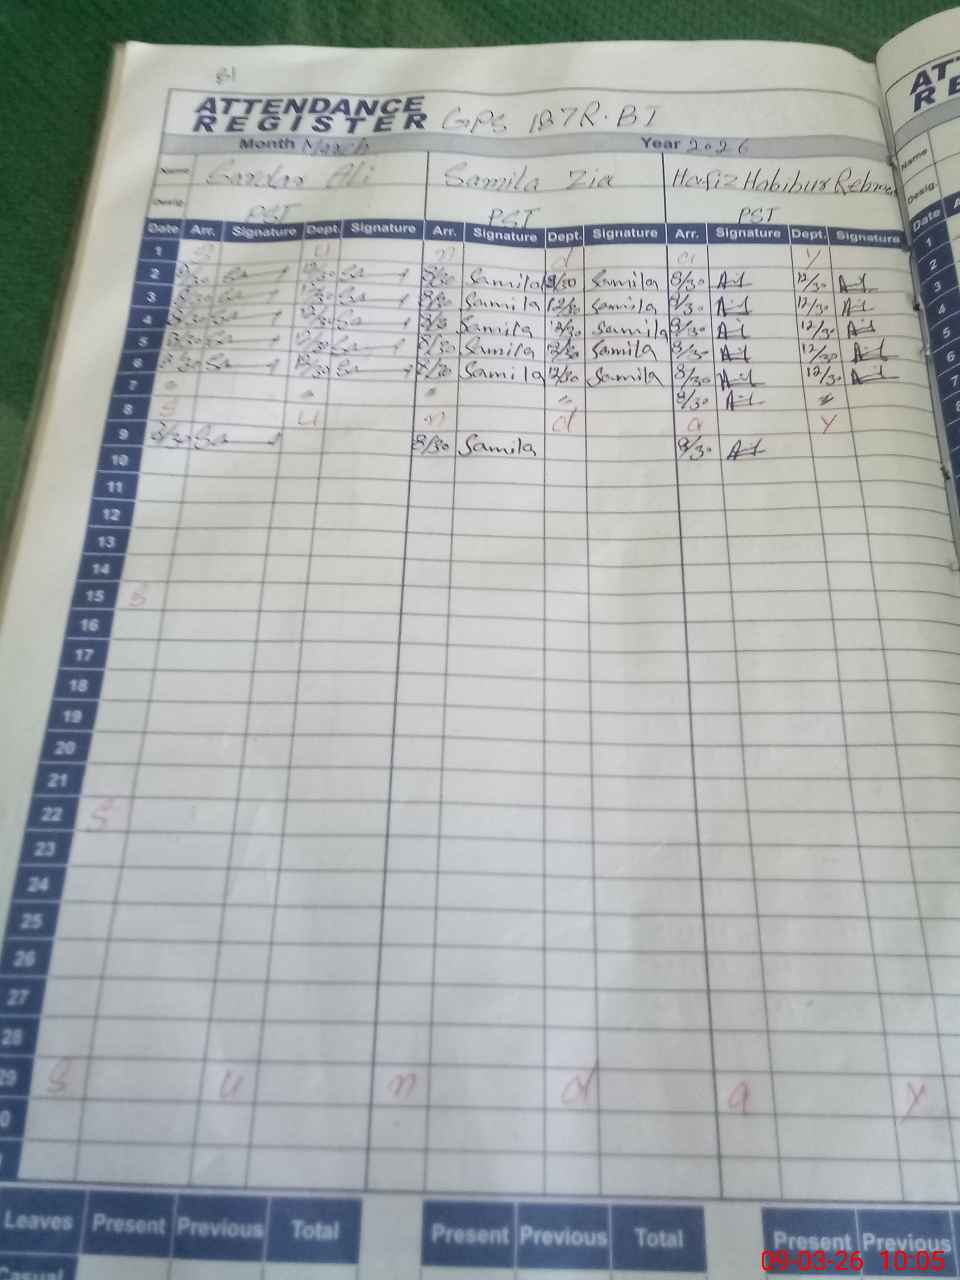 81
ATTENDANCE
REGISTER GPS 187R.BI
Month March Year 2026
Name Sardar Ali Samila Zia Hafiz Habibur Rehman
Desig. PST PST PST
Date Arr. Signature Dept. Signature Arr. Signature Dept. Signature Arr. Signature Dept. Signature
1 S u n d a y
2 8/30 Sa 12/30 Sa 8/30 Samila 12/30 Samila 8/30 12/30
3 8/30 Sa 12/30 Sa 8/30 Samila 12/30 Samila 8/30 12/30
4 8/30 Sa 12/30 Sa 8/30 Samila 12/30 Samila 8/30 12/30
5 8/30 Sa 12/30 Sa 8/30 Samila 12/30 Samila 8/30 12/30
6 8/30 Sa 12/30 Sa 8/30 Samila 12/30 Samila 8/30 12/30
7 8/30
8 S u n d a y
9 8/30 Sa 8/30 Samila 8/30
10
11
12
13
14
15 S
16
17
18
19
20
21
22 S
23
24
25
26
27
28
29 S u n d a y
0
Leaves Present Previous Total Present Previous Total Present Previous
Casual
AT
RE
Name
Desig.
Date A
1
2
3
4
5
6
7
8
09-03-26 10:05